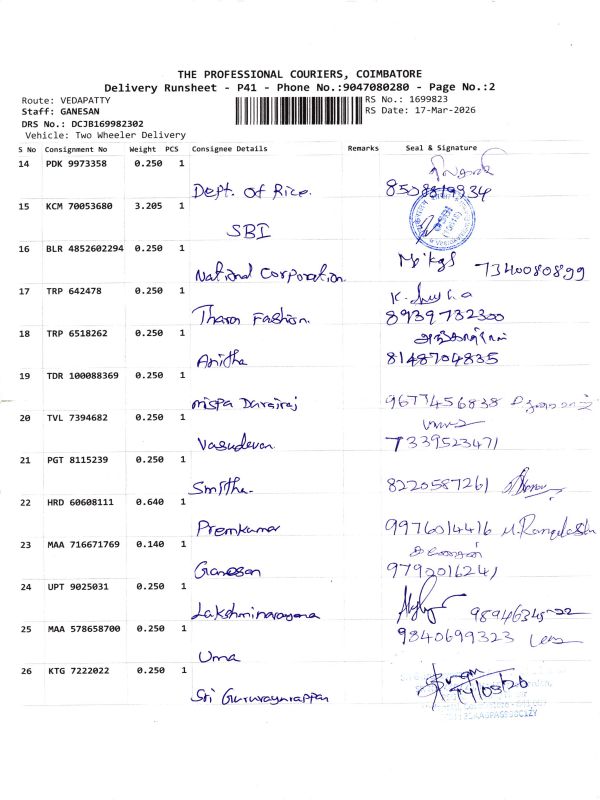 THE PROFESSIONAL COURIERS, COIMBATORE
Delivery Runsheet - P41 - Phone No.:9047080280 - Page No.:2
Route: VEDAPATTY
RS No.: 1699823
Staff: GANESAN
RS Date: 17-Mar-2026
DRS No.: DCJB169982302
Vehicle: Two Wheeler Delivery
S No Consignment No Weight PCS Consignee Details Remarks Seal & Signature
14 PDK 9973358 0.250 1
Dept. of Rice.
15 KCM 70053680 3.205 1
SBI
16 BLR 4852602294 0.250 1
National Corporation 7340080899
17 TRP 642478 0.250 1
Tharan Fashion. 8939732300
18 TRP 6518262 0.250 1
Anitha 8148704835
19 TDR 100088369 0.250 1
mispa Darairaj 9677456838
20 TVL 7394682 0.250 1
Vasudevan. 7339523471
21 PGT 8115239 0.250 1
Smitha. 8220587261
22 HRD 60608111 0.640 1
Premkumar 9976014416
23 MAA 716671769 0.140 1
Ganesan 9792016241
24 UPT 9025031 0.250 1
Lakshminarayana
25 MAA 578658700 0.250 1 9840699323
Uma
26 KTG 7222022 0.250 1
Sri Guruvayurappan